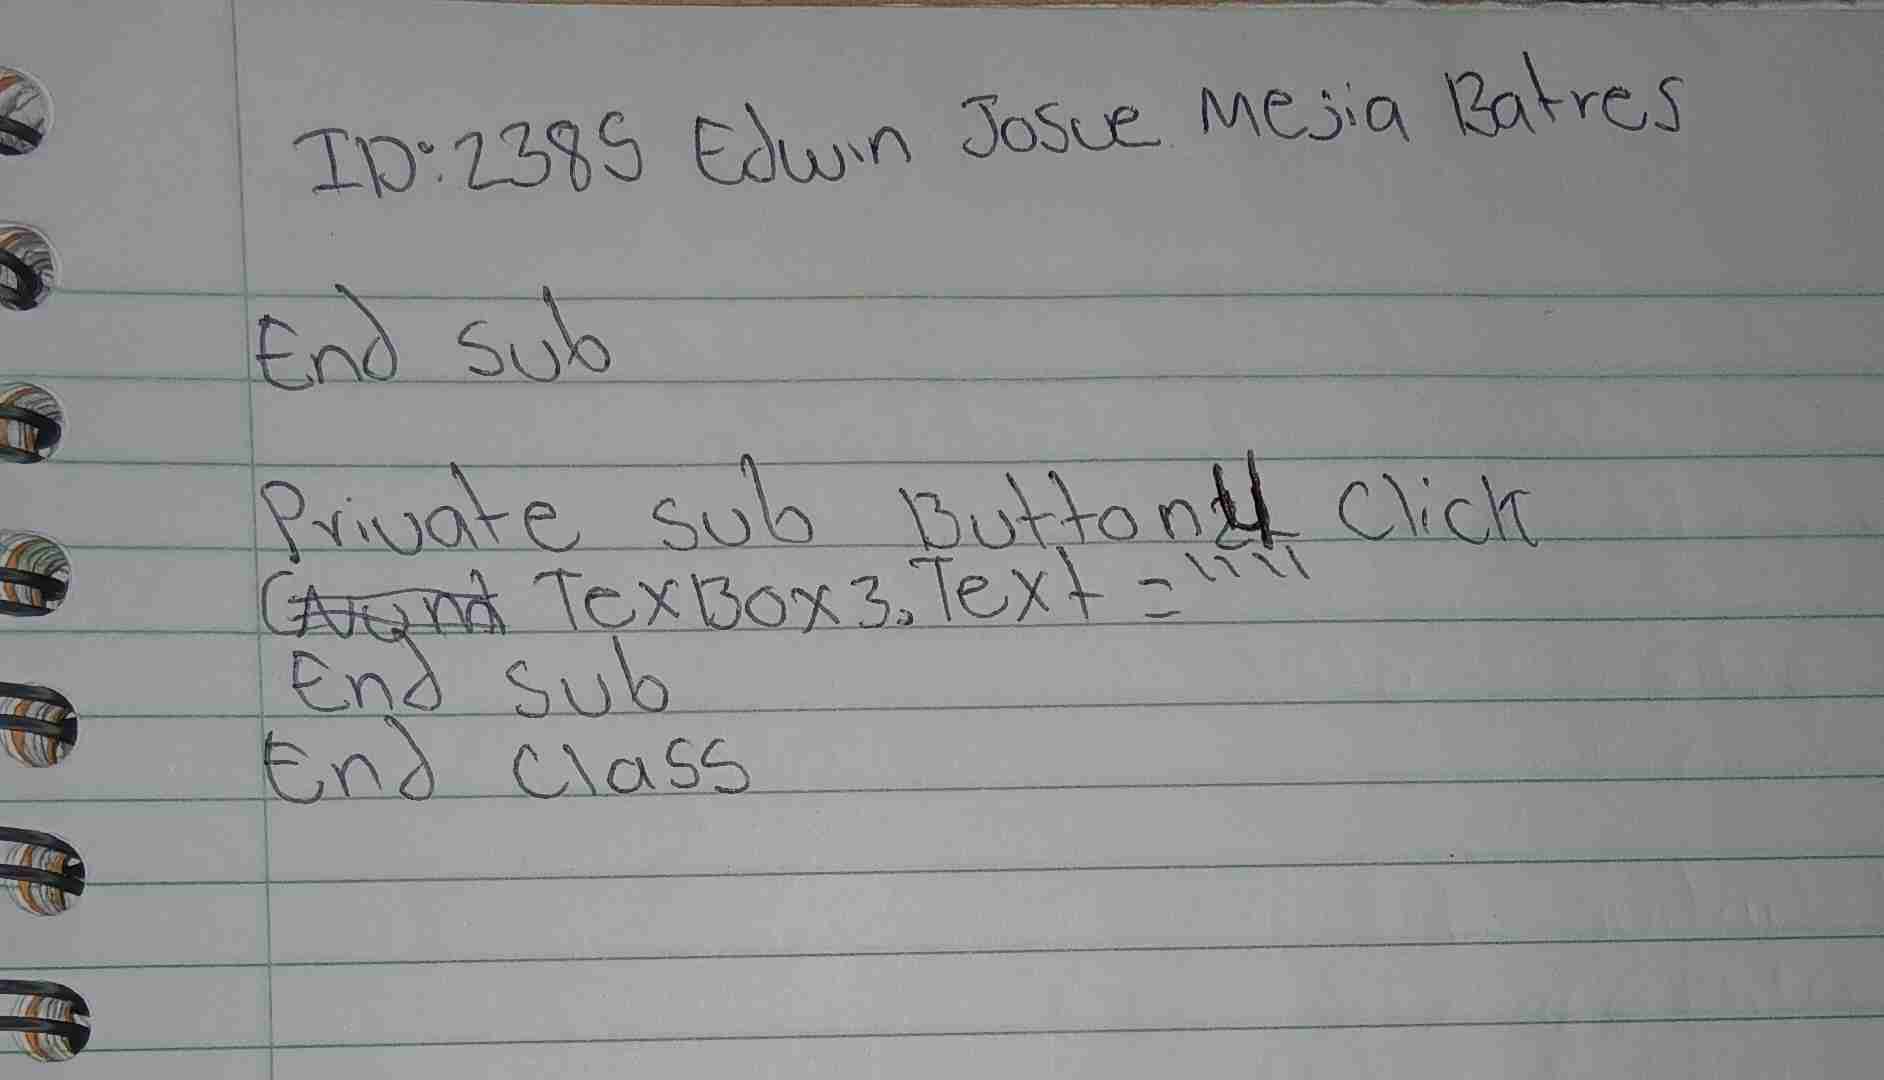 ID:2385 Edwin Josue Mejia Batres
End sub
Private sub Button4 Click
TexBox3.Text = ""
End sub
End class